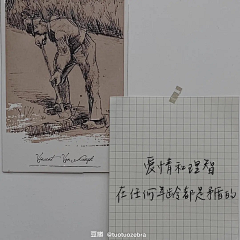 Vincent Van Gogh
爱情和理智
在任何年龄都是矛盾的
豆瓣 @tuotuozebra